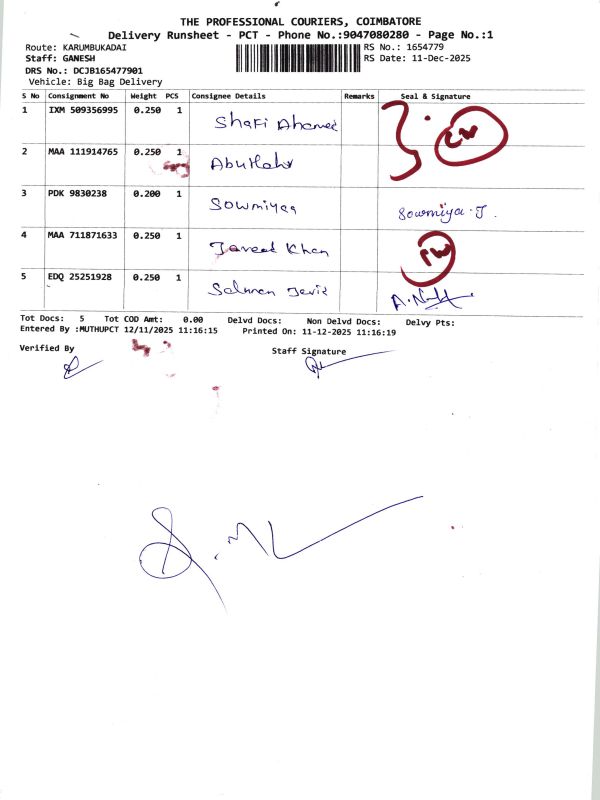 THE PROFESSIONAL COURIERS, COIMBATORE
Delivery Runsheet - PCT - Phone No.:9047080280 - Page No.:1
Route: KARUMBUKADAI RS No.: 1654779
Staff: GANESH RS Date: 11-Dec-2025
DRS No.: DCJB165477901
Vehicle: Big Bag Delivery
S No Consignment No Weight PCS Consignee Details Remarks Seal & Signature
1 IXM 509356995 0.250 1 Shafi Ahamed
2 MAA 111914765 0.250 1
3 PDK 9830238 0.200 1 Sowmiyaa Sowmiya.J.
4 MAA 711871633 0.250 1 Javeed Khan
5 EDQ 25251928 0.250 1 Salman
Tot Docs: 5 Tot COD Amt: 0.00 Delvd Docs: Non Delvd Docs: Delvy Pts:
Entered By :MUTHUPCT 12/11/2025 11:16:15 Printed On: 11-12-2025 11:16:19
Verified By Staff Signature